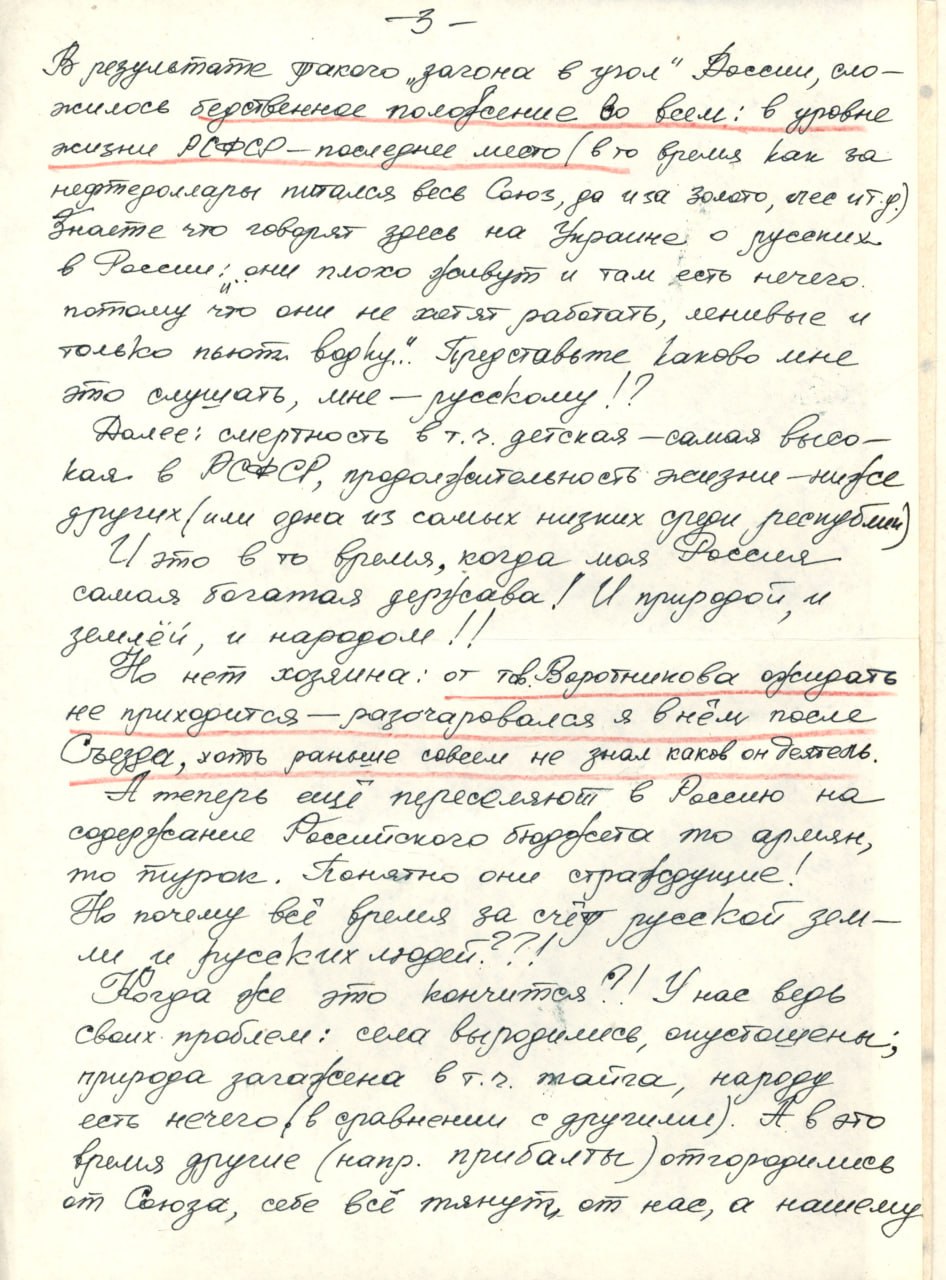 —3—
В результате такого „загона в угол“ России, сло-
жилось бедственное положение во всем: в уровне
жизни РСФСР — последнее место (в то время как за
нефтедоллары питался весь Союз, да и за золото, лес и т.д.)
Знаете что говорят здесь на Украине о русских
в России: „они плохо живут и там есть нечего
потому что они не хотят работать, ленивые и
только пьют водку“. Представьте каково мне
это слушать, мне — русскому!?
Далее: смертность в т.ч. детская — самая высо-
кая в РСФСР, продолжительность жизни — ниже
других (или одна из самых низких среди республик)
И это в то время, когда моя Россия
самая богатая держава! И природой, и
землёй, и народом!!
Но нет хозяина: от тов. Воротникова ожидать
не приходится — разочаровался я в нём после
Съезда, хоть раньше совсем не знал каков он деятель.
А теперь ещё переселяют в Россию на
содержание Российского бюджета то армян,
то турок. Понятно они страждущие!
Но почему всё время за счёт русской зем-
ли и русских людей???!
Когда же это кончится?! У нас ведь
своих проблем: села выродились, опустошены;
природа загажена в т.ч. тайга, народу
есть нечего (в сравнении с другими). А в это
время другие (напр. прибалты) отгородились
от Союза, себе всё тянут, от нас, а нашему